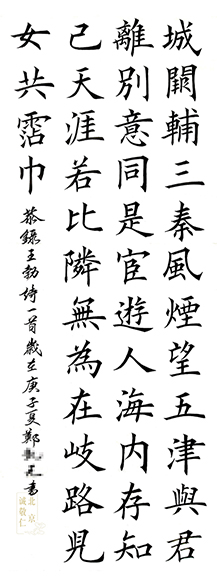 城闕輔三秦風煙望五津與君
離別意同是宦遊人海内存知
己天涯若比隣無為在岐路兒
女共霑巾
恭錄王勃詩一首歲在庚子夏鄭 書
北京
誠敬仁